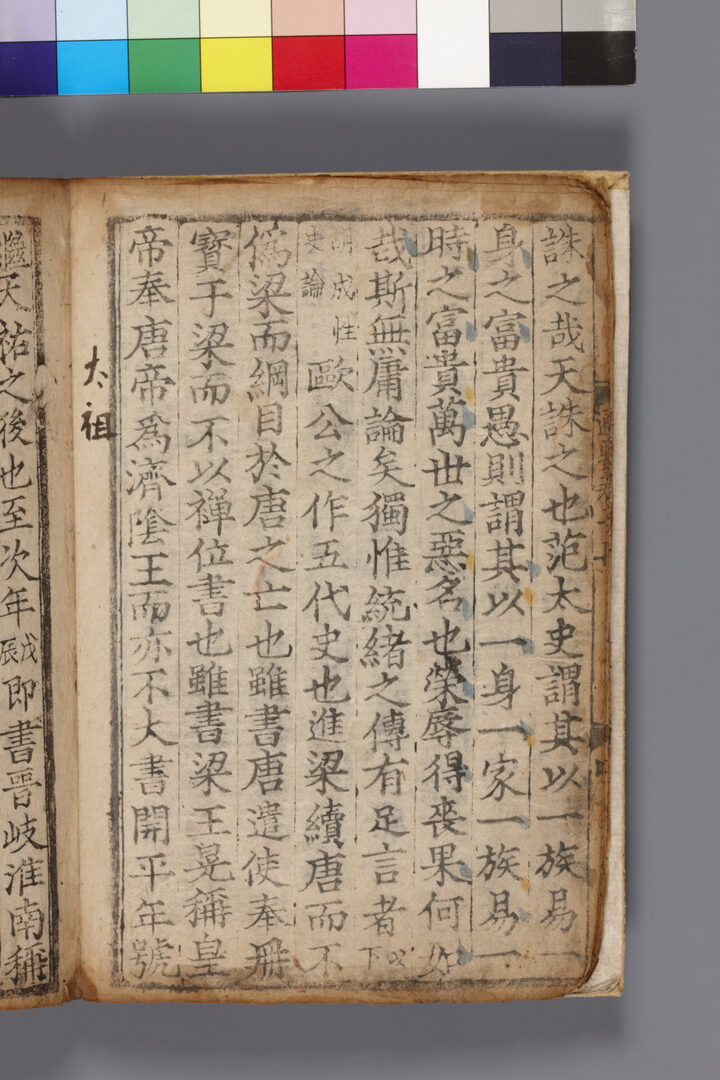 誅之哉天誅之也范太史謂其以一族易一
身之富貴愚則謂其以一身一家一族易一
時之富貴萬世之惡名也榮辱得喪果何如
哉斯無庸論矣獨惟統緒之傳有足言者以下
胡成性史論歐公之作五代史也進梁續唐而不
僞梁而綱目於唐之亡也雖書唐遣使奉冊
寳于梁而不以禅位書也雖書梁王晃稱皇
帝奉唐帝爲濟隂王而亦不大書開平年號
太祖
天祐之後也至次年戊辰即書晉岐淮南稱